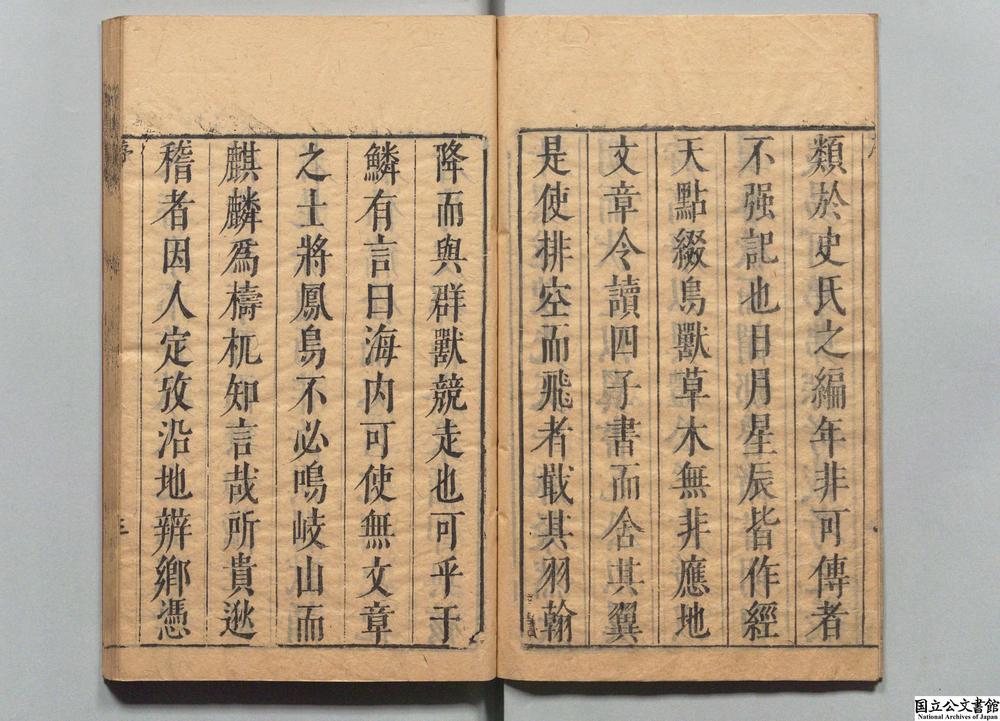 類於史氏之編年非可傳者
不强記也日月星辰皆作經
天點綴鳥獸草木無非應地
文章令讀四子書而舍其翼
是使排空而飛者戢其羽翰
降而與群獸競走也可乎于
鱗有言曰海内可使無文章
之士將鳳鳥不必鳴岐山而
麒麟爲檮杌知言哉所貴逖
稽者因人定攷沿地辯鄉憑
序
三
国立公文書館
National Archives of Japan